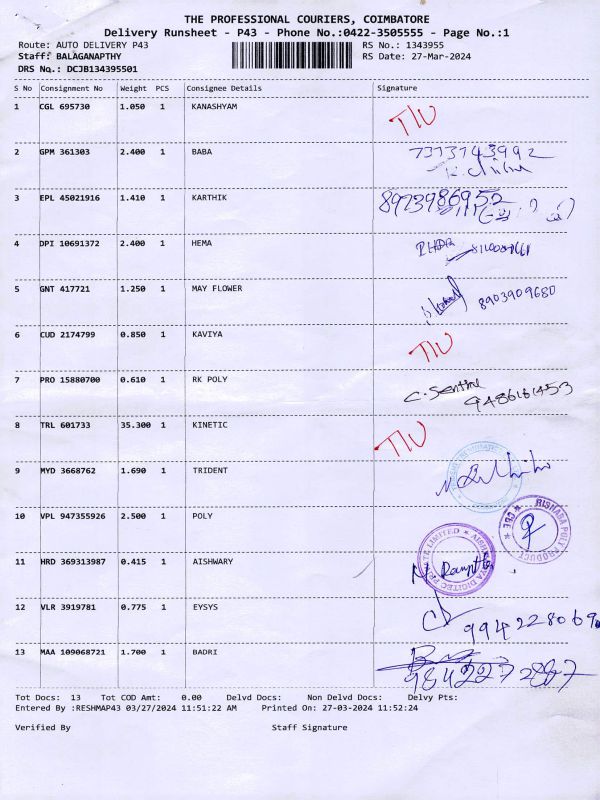 THE PROFESSIONAL COURIERS, COIMBATORE
Delivery Runsheet - P43 - Phone No.:0422-3505555 - Page No.:1
Route: AUTO DELIVERY P43 RS No.: 1343955
Staff: BALAGANAPTHY RS Date: 27-Mar-2024
DRS No.: DCJB134395501
S No Consignment No Weight PCS Consignee Details Signature
1 CGL 695730 1.050 1 KANASHYAM
2 GPM 361303 2.400 1 BABA 7373743992
3 EPL 45021916 1.410 1 KARTHIK 8923986952
4 DPI 10691372 2.400 1 HEMA
5 GNT 417721 1.250 1 MAY FLOWER 8903909680
6 CUD 2174799 0.850 1 KAVIYA
7 PRO 15880700 0.610 1 RK POLY C. Senthil
8 TRL 601733 35.300 1 KINETIC
9 MYD 3668762 1.690 1 TRIDENT
10 VPL 947355926 2.500 1 POLY RISHABA POLY PRODUCT * CBE *
11 HRD 369313987 0.415 1 AISHWARY PRIVATE LIMITED
12 VLR 3919781 0.775 1 EYSYS 994228069
13 MAA 109068721 1.700 1 BADRI 9842272887
Tot Docs: 13 Tot COD Amt: 0.00 Delvd Docs: Non Delvd Docs: Delvy Pts:
Entered By :RESHMAP43 03/27/2024 11:51:22 AM Printed On: 27-03-2024 11:52:24
Verified By Staff Signature